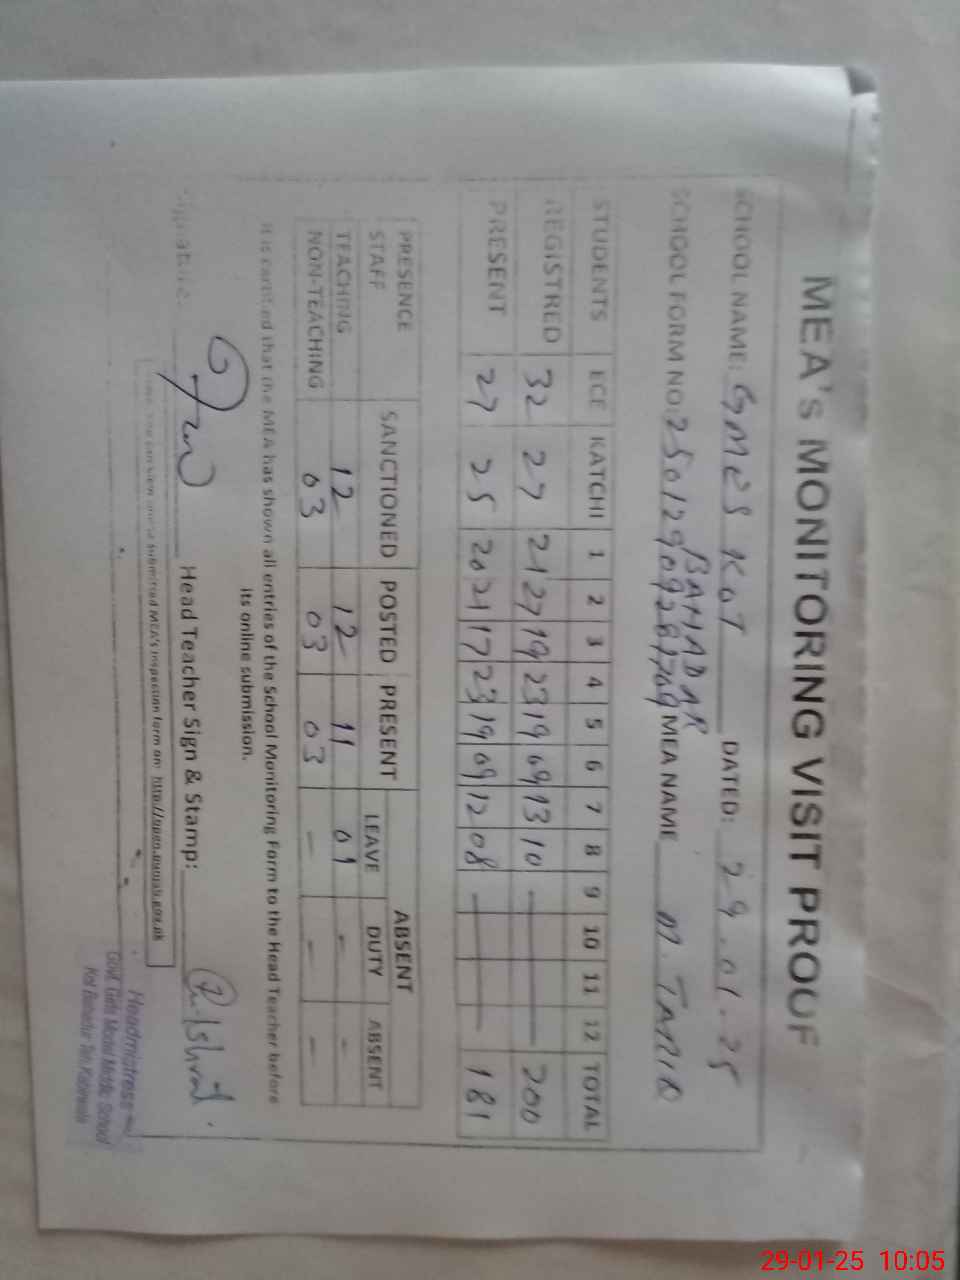 MEA's MONITORING VISIT PROOF
SCHOOL NAME: GMES KOT BAHADAR DATED: 29.01.25
SCHOOL FORM NO: MEA NAME M. TARIQ
STUDENTS ECE KATCHI 1 2 3 4 5 6 7 8 9 10 11 12 TOTAL
REGISTRED 32 27 21 27 19 23 19 09 13 10 — 200
PRESENT 27 25 20 21 17 23 19 09 12 08 — 181
PRESENCE STAFF SANCTIONED POSTED PRESENT ABSENT
LEAVE DUTY ABSENT
TEACHING 12 12 11 01 - -
NON-TEACHING 03 03 03 - - -
It is certified that the MEA has shown all entries of the School Monitoring Form to the Head Teacher before
its online submission.
Signature: Head Teacher Sign & Stamp:
submitted MEA's inspection form on: http://open.punjab.gov.pk
Headmistress
Govt. Girls Model Middle School
Kot Bahadur Teh Kabirwala
29-01-25 10:05